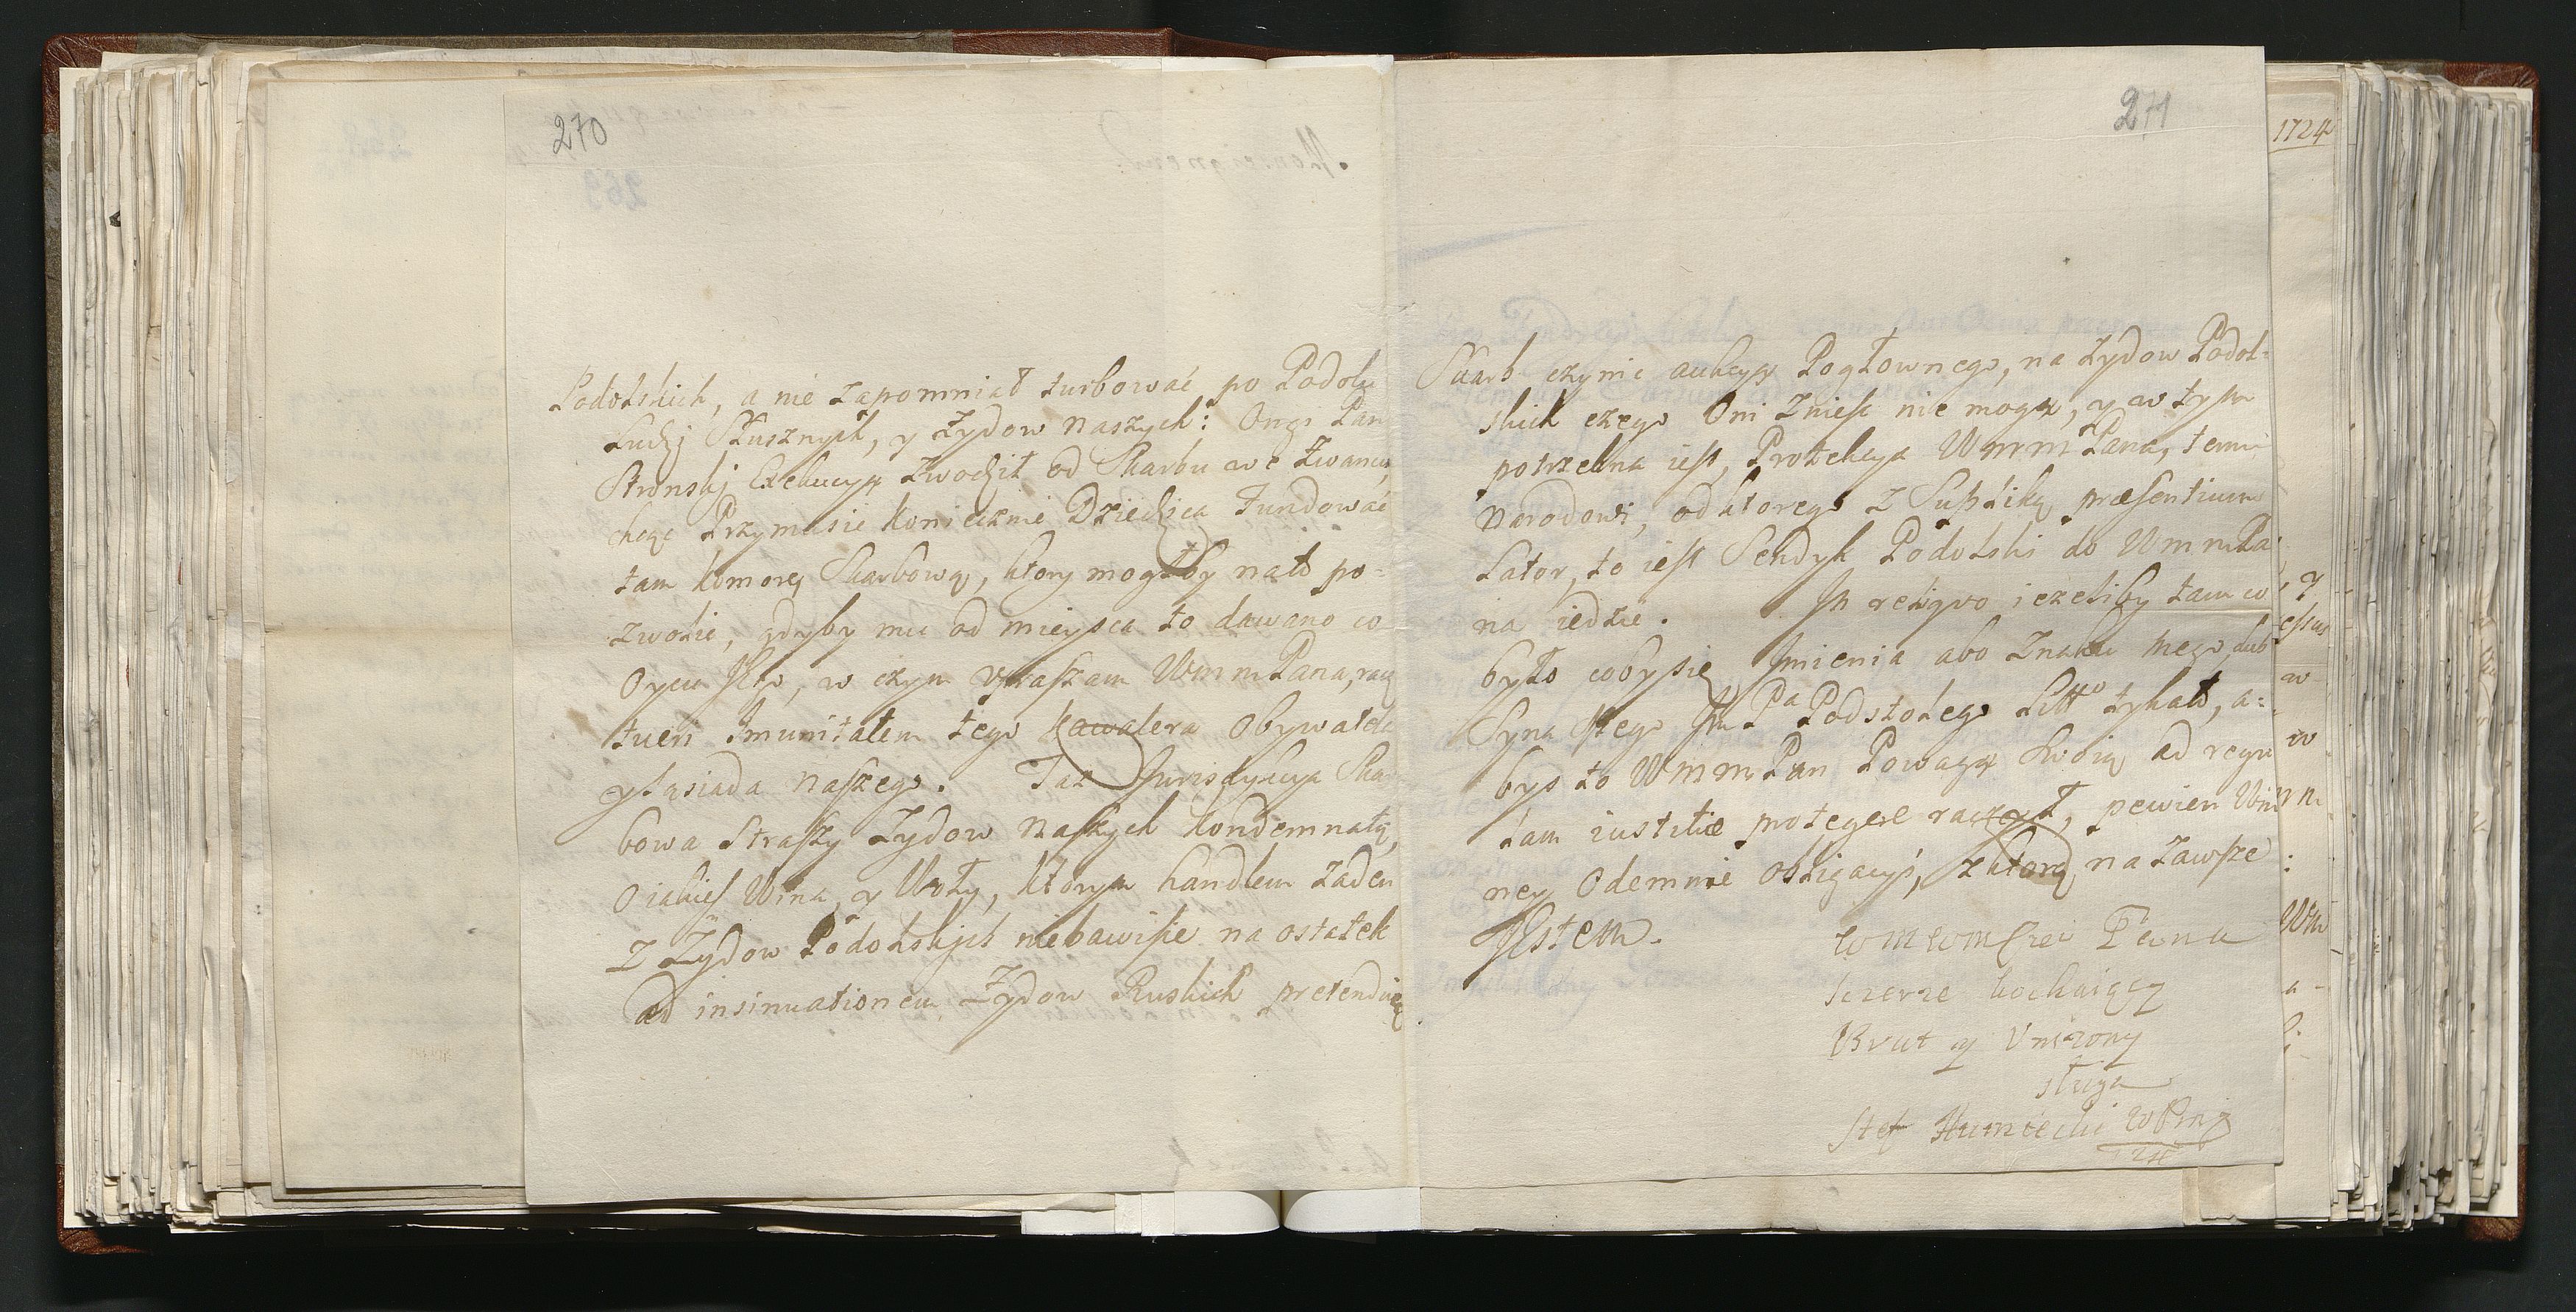 270
Podolskich, a nie zapomniał turbować po Podolu
Ludzj Słusznych, y Żydow naszych: Ongi Pan
Stronskj Exekucyą zwodził od Skarbu we Zwancu,
chcąc Przymusic koniecznie Dziedzica Fundować
tam komorę Skarbową, ktory mogłby nato po=
zwolic, gdyby mu od mieysca to dawano co
Oycu Jego, w czym vpraszam WmmPana, racz
tueri Imunitatem tego kawalera Obywatela
y sąsiada naszego. Taż Jurisdykcya Skar
bowa Straszy Żydow naszych kondemnatą,
O iakies Wina, y Woły, ktorym handlem żaden
z Żydow Podolskich niebawisie na ostatek
ad insinuationem Żydow Ruskich pretenduię
271
Skarb czynic aukcyą Pogłownego, na żydow Podol=
skich czego Oni Zniesc nie mogą, y w tym
potrzebna iest, Protekcya WmmPana, temu
narodowi, od ktorego z Supliką præsentium
Lator, to iest Sendyk Podolski do WmmPa
na iedzie. In reliquo iezeliby tam co
było cobysię Imienia abo Znaku mego, lub
Syna Mego JmPa Podstolego Litt° tykało, a=
bys to WmmPan Powagą Swoią ad regu
lam iustitiæ protegere raczył, pewien Wm
ney Odemnie obligacyi, z ktorą na zawsze
Jestem.
WmWmsczei Pana
sczerze kochaiący
Brat y Vnizony
sługa
Stef Humiecki WPmj
1724